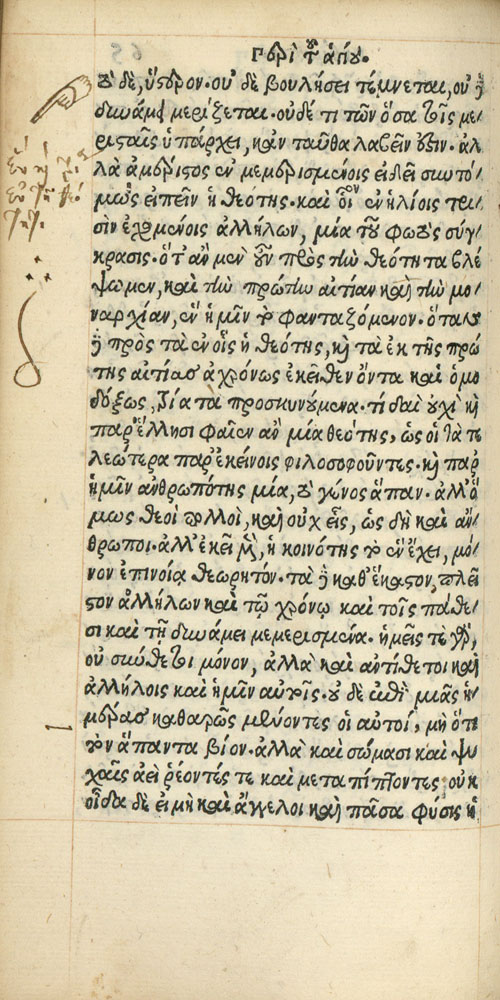 Γρηγορίου τοῦ ἁγίου.
τὸ δὲ, ὕστερον. οὐδὲ βουλήσει τέμνεται, οὐδὲ
δυνάμει μερίζεται. οὐδέ τι τῶν ὅσα τοῖς με
ριστοῖς ὑπάρχει, κἀν ταῦθα λαβεῖν ἐστιν. ἀλ
λὰ ἀμέριστος ἐν μεμερισμένοις εἰ δεῖ συντό
μως εἰπεῖν ἡ θεότης. καὶ οἷον ἐν ἡλίοις τρι
σὶν ἐχομένοις ἀλλήλων, μία τοῦ φωτὸς σύγ
κρασις. ὅτ' ἂν μὲν οὖν πρὸς τὴν θεότητα βλέ
ψωμεν, καὶ τὴν πρώτην αἰτίαν καὶ τὴν μο
ναρχίαν, ἓν ἡμῖν τὸ φανταζόμενον. ὅταν
δὲ πρὸς τὰ ἐν οἷς ἡ θεότης, καὶ τὰ ἐκ τῆς πρώ
της αἰτίας ἀχρόνως ἐκεῖθεν ὄντα καὶ ὁμο
δόξως, τρία τὰ προσκυνούμενα. τί δαὶ οὐχὶ καὶ
παρ' ἕλλησι φαῖεν ἂν μία θεότης, ὡς οἱ τὰ τε
λεώτερα παρ' ἐκείνοις φιλοσοφοῦντες. καὶ παρ'
ἡμῖν ἀνθρωπότης μία, τὸ γένος ἅπαν. ἀλλ' ὅ
μως θεοὶ πολλοὶ, καὶ οὐχ εἷς, ὡς δὴ καὶ ἄν
θρωποι. ἀλλ' ἐκεῖ μὲν, ἡ κοινότης τὸ ἓν ἔχει, μό
νον ἐπινοίᾳ θεωρητόν. τὰ δὲ καθ' ἕκαστον, πλεῖ
στον ἀλλήλων καὶ τῷ χρόνῳ καὶ τοῖς πάθε
σι καὶ τῇ δυνάμει μεμερισμένα. ἡμεῖς τὲ γὰρ,
οὐ σύνθετοι μόνον, ἀλλὰ καὶ ἀντίθετοι καὶ
ἀλλήλοις καὶ ἡμῖν αὐτοῖς. οὐδὲ ἐπὶ μιᾶς ἡ
μέρας καθαρῶς μένοντες οἱ αὐτοί, μὴ ὅτι
τὸν ἅπαντα βίον. ἀλλὰ καὶ σώμασι καὶ ψυ
χαῖς ἀεὶ ῥέοντές τε καὶ μεταπίπτοντες οὐκ
οἶδα δὲ εἰ μὴ καὶ ἄγγελοι καὶ πᾶσα φύσις ἡ